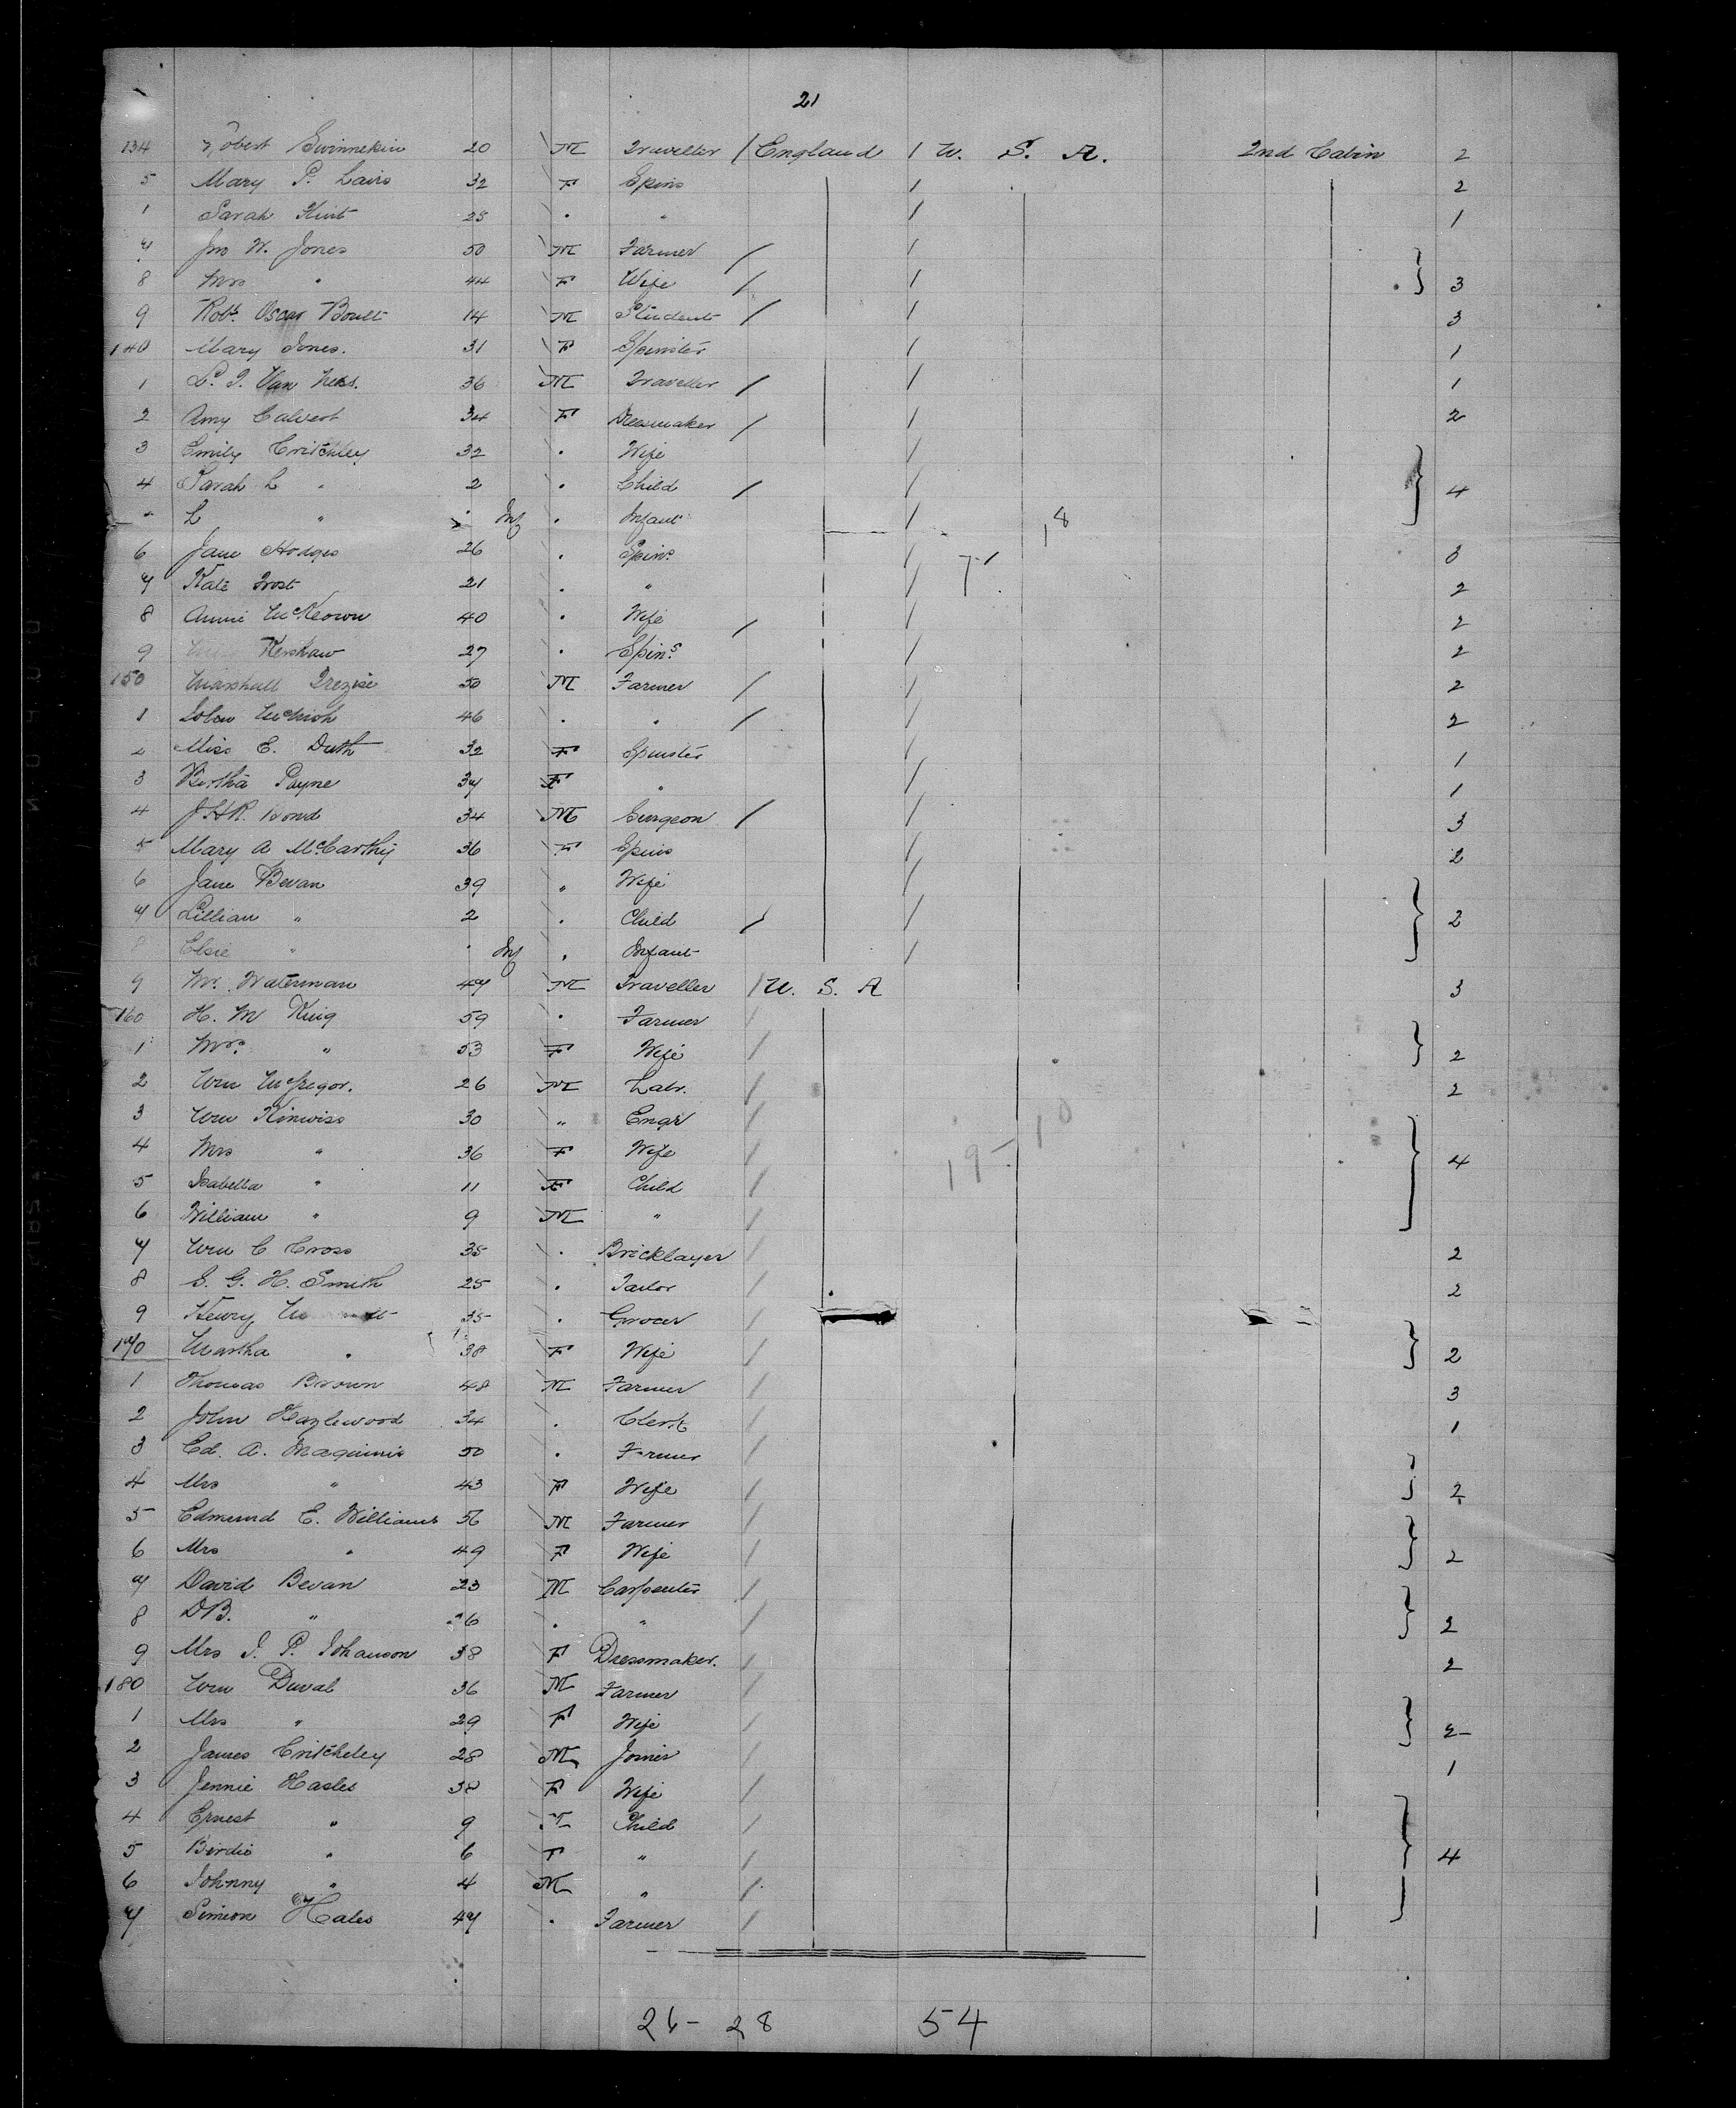 21
134 Robert Swinnekin 20 M Traveller / England / U. S. A. 2nd Cabin 2
5 Mary P. Lairs 32 F Spins / 2
1 Sarah 23 . " / 1
7 Jno W. Jones 50 M Farmer / /
8 Mrs " 44 F Wife / / 3
9 Robt. Oscar Boult 14 M Student / / 3
140 Mary Jones. 31 F Spinster / 1
1 Van 36 M Traveller / / 1
2 Amy Calvert 34 F Dressmaker / / 2
3 Emily Critchley 32 . Wife /
4 Sarah L " 2 . Child / / 4
" L " . Inf . Infant / 18
6 Jane Hodges 26 . Spins. / 7-1 3
7 Kate Frost 21 . " / 2
8 Annie McKeown 40 . Wife / / 2
9 Kershaw 27 . Spins. / 2
150 Marshall Trezise 50 M Farmer / / 2
1 John 46 . " / / 2
2 Miss E. Duth 32 F Spinster / 1
3 Bertha Payne 37 F " / 1
4 J H R. Bond 34 M Surgeon / / 3
5 Mary A McCarthy 36 F Spins / 2
6 Jane Bevan 39 " Wife /
7 Lillian " 2 . Child / / 2
8 Elsie " . Inf . Infant /
9 Mr. Waterman 47 M Traveller / U. S. A 3
160 H. M King 59 . Farmer /
1 Mrs. " 53 F Wife / 2
2 Wm McGregor. 26 M Labr. / 2
3 Wm Kinwiss 30 " Engr /
4 Mrs " 36 F Wife / 19-10 4
5 Isabella " 11 F Child /
6 William " 9 M " /
7 Wm C Cross 35 . Bricklayer / 2
8 S. G. H. Smith 25 . Tailor / 2
9 Henry 35 . Grocer /
170 Martha " 38 F Wife / 2
1 Thomas Brown 48 M Farmer / 3
2 John Hazlewood 34 . Clerk / 1
3 Ed. A. Maginnis 50 . Farmer /
4 Mrs " 43 F Wife / 2
5 Edmund E. Williams 56 M Farmer /
6 Mrs " 49 F Wife / 2
7 David Bevan 23 M Carpenter /
8 DB. " 26 . " / 2
9 Mrs J. P. Johanson 38 F Dressmaker. / 2
180 Wm Duval 36 M Farmer /
1 Mrs " 29 F Wife / 2
2 James Critcheley 28 M Joiner / 1
3 Jennie Hasles 38 F Wife /
4 Ernest " 9 M Child /
5 Birdie " 6 F " / 4
6 Johnny " 4 M " /
7 Simeon Hales 47 . Farmer /
26 - 28 54